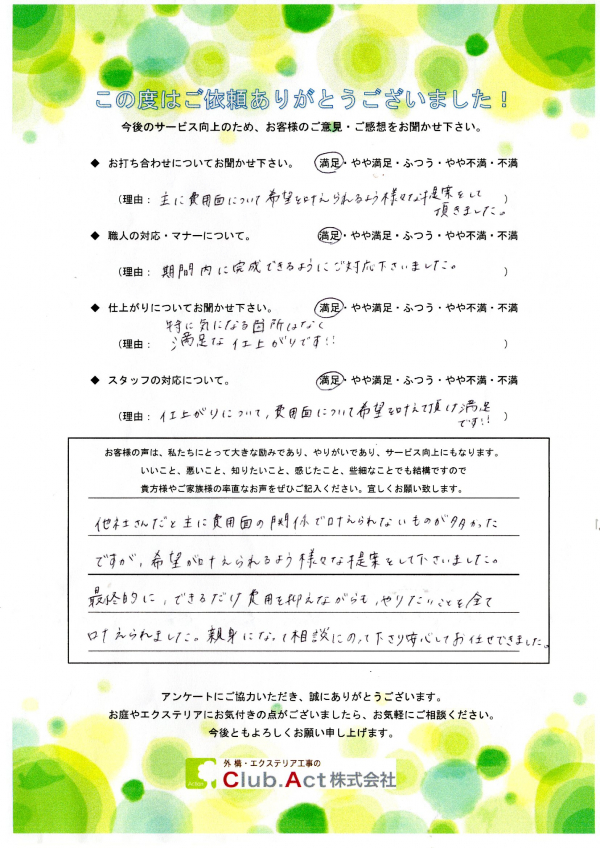 この度はご依頼ありがとうございました!
今後のサービス向上のため、お客様のご意見・ご感想をお聞かせ下さい。
◆ お打ち合わせについてお聞かせ下さい。 満足・やや満足・ふつう・やや不満・不満
(理由: 主に費用面について希望を叶えられるよう様々な提案をして
頂きました。 )
◆ 職人の対応・マナーについて。 満足・やや満足・ふつう・やや不満・不満
(理由: 期間内に完成できるようにご対応下さいました。 )
◆ 仕上がりについてお聞かせ下さい。 満足・やや満足・ふつう・やや不満・不満
特に気になる箇所はなく
(理由: 満足な仕上がりです!! )
◆ スタッフの対応について。 満足・やや満足・ふつう・やや不満・不満
(理由: 仕上がりについて、費用面について希望を叶えて頂け満足
です!! )
お客様の声は、私たちにとって大きな励みであり、やりがいであり、サービス向上にもなります。
いいこと、悪いこと、知りたいこと、感じたこと、些細なことでも結構ですので
貴方様やご家族様の率直なお声をぜひご記入ください。宜しくお願い致します。
他社さんだと主に費用面の関係で叶えられないものが多かった
ですが、希望が叶えられるよう様々な提案をして下さいました。
最終的に、できるだけ費用を抑えながらも、やりたいことを全て
叶えられました。親身になって相談にのって下さり安心してお任せできました。
アンケートにご協力いただき、誠にありがとうございます。
お庭やエクステリアにお気付きの点がございましたら、お気軽にご相談ください。
今後ともよろしくお願い申し上げます。
外構・エクステリア工事の
Club.Act株式会社